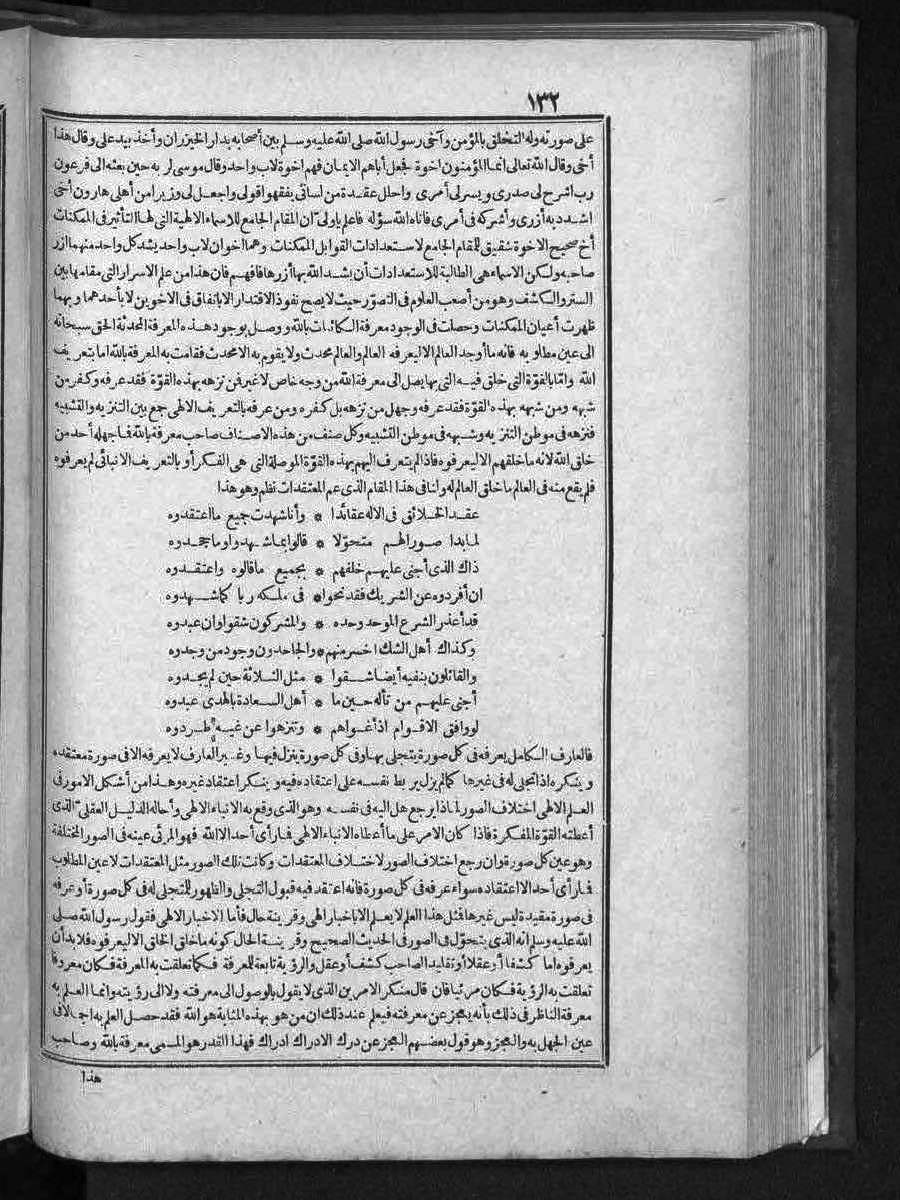 ١٣٢
على صورته وله التخلق بالمؤمن وآخى رسول الله صلى الله عليه وسلم بين أصحابه بدار الخيزران وأخذ بيد على وقال هذا
أخى وقال الله تعالى انما المؤمنون اخوة فجعل أباهم الايمان فهم اخوة لاب واحد وقال موسى لربه حين بعثه الى فرعون
رب اشرح لى صدرى ويسر لى أمرى واحلل عقدة من لسانى يفقهوا قولى واجعل لى وزيرا من أهلى هارون أخى
اشدد به أزرى وأشركه فى أمرى فاتاه الله سؤله فاعلم يا ولىّ ان المقام الجامع للاسماء الالهية التى لها التأثير فى الممكنات
أخ صحيح الاخوة شقيق للمقام الجامع لاستعدادات القوابل الممكنات وهما اخوان لاب واحد يشد كل واحد منهما ازر
صاحبه ولكن الاسماء هى الطالبة للاستعدادات أن يشد الله بها أزرها فافهم فان هذا من علم الاسرار التى مقامها بين
الستر والكشف وهو من أصعب العلوم فى التصوّر حيث لا يصح نفوذ الاقتدار الا باتفاق فى الاخوين لا بأحدهما وبهما
ظهرت أعيان الممكنات وحصلت فى الوجود معرفة الكائنات بالله ووصل بوجود هذه المعرفة المحدثة الحق سبحانه
الى عين مطلوبه فانه ما أوجد العالم الا ليعرفه العالم والعالم محدث ولا يقوم به الا محدث فقامت به المعرفة بالله اما بتعريف
الله وامّا بالقوّة التى خلق فيه التى بها يصل الى معرفة الله من وجه خاص لا غير فمن نزهه بهذه القوّة فقد عرفه وكفر من
شبهه ومن شبهه بهذه القوّة فقد عرفه وجهل من نزهه بل كفره ومن عرفه بالتعريف الالهى جمع بين التنزيه والتشبيه
فنزهه فى موطن التنزيه وشبهه فى موطن التشبيه وكل صنف من هذه الاصناف صاحب معرفة بالله فما جهله أحد من
خلق الله لانه ما خلقهم الا ليعرفوه فاذا لم يتعرف اليهم بهذه القوّة الموصلة التى هى الفكر أو بالتعريف الانبائى لم يعرفوه
فلم يقع منه فى العالم ما خلق العالم له ولنا فى هذا المقام الذى عم المعتقدات نظم وهو هذا
عقد الخلائق فى الاله عقائدا * وأنا شهدت جميع ما اعتقدوه
لما بدا صورا لهم متحوّلا * قالوا بما شهدوا وما جحدوه
ذاك الذى أجنى عليهم خلفهم * بجميع ما قالوه واعتقدوه
ان أفردوه عن الشريك فقد نحوا * فى ملكه ربا كما شهدوه
قد أعذر الشرع الموحد وحده * والمشركون شقوا وان عبدوه
وكذاك أهل الشك اخسر منهم * والجاحدون وجود من وجدوه
والقائلون بنفيه أيضا شقوا * مثل الثلاثة حين لم يجدوه
أجنى عليهم من تأله حين ما * أهل السعادة بالهدى عبدوه
لو وافق الاقوام اذ أغواهم * وتنزهوا عن غيه طردوه
فالعارف الكامل يعرفه فى كل صورة يتجلى بها وفى كل صورة ينزل فيها وغير العارف لا يعرفه الا فى صورة معتقده
وينكره اذا تجلى له فى غيرها كما لم يزل يربط نفسه على اعتقاده فيه وينكر اعتقاد غيره وهذا من أشكل الامور فى
العلم الالهى اختلاف الصور لماذا يرجع هل اليه فى نفسه وهو الذى وقع به الانباء الالهى وأحاله الدليل العقلىّ الذى
أعطته القوّة المفكرة فاذا كان الامر على ما أعطاه الانباء الالهى فما رأى أحد الا الله فهو المرئى عينه فى الصور المختلفة
وهو عين كل صورة وان رجع اختلاف الصور لاختلاف المعتقدات وكانت تلك الصور مثل المعتقدات لا عين المطلوب
فما رأى أحد الا اعتقاده سواء عرفه فى كل صورة فانه اعتقد فيه قبول التجلى والظهور للمتجلى له فى كل صورة أو عرفه
فى صورة مقيدة ليس غيرها فمثل هذا العلم لا يعلم الا باخبار الهى وقرينة حال فأما الاخبار الالهى فقول رسول الله صلى
الله عليه وسلم انه الذى يتحوّل فى الصور فى الحديث الصحيح وقرينة الحال كونه ما خلق الخلق الا ليعرفوه فلا بد أن
يعرفوه اما كشفا أو عقلا أو تقليد الصاحب كشف أو عقل والرؤية تابعة للمعرفة فكما تعلقت به المعرفة فكان معروفا
تعلقت به الرؤية فكان مرئيا فان قال منكر الامرين الذى لا يقول بالوصول الى معرفته ولا الى رؤيته وانما العلم به
معرفة الناظر فى ذلك بأنه يعجز عن معرفته فيعلم عند ذلك ان من هو بهذه المثابة هو الله فقد حصل العلم به اجمالا فى
عين الجهل به والعجز وهو قول بعضهم العجز عن درك الادراك ادراك فهذا القدر هو المسمى معرفة بالله وصاحب
هذا